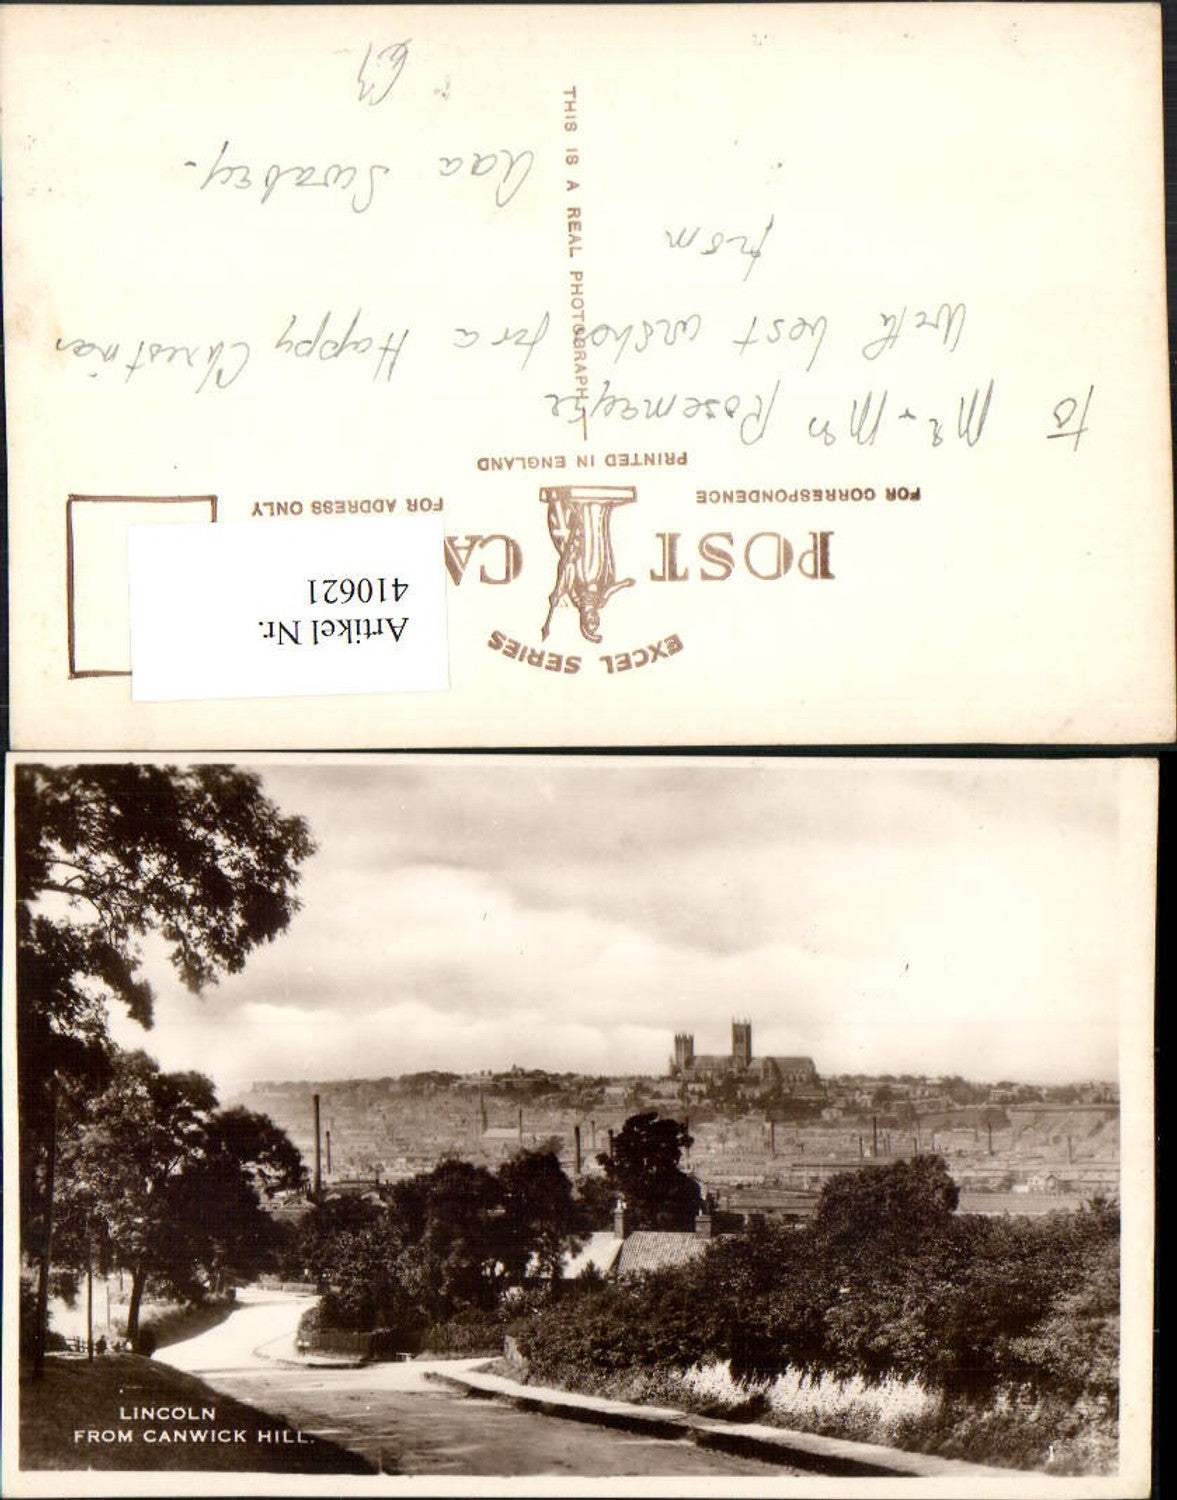 EXCEL SERIES
POST CA
FOR CORRESPONDENCE
FOR ADDRESS ONLY
PRINTED IN ENGLAND
THIS IS A REAL PHOTOGRAPH
Artikel Nr.
410621
To Mr + Mrs
With best wishes for a Happy Christmas
from
Swabey.
LINCOLN
FROM CANWICK HILL.